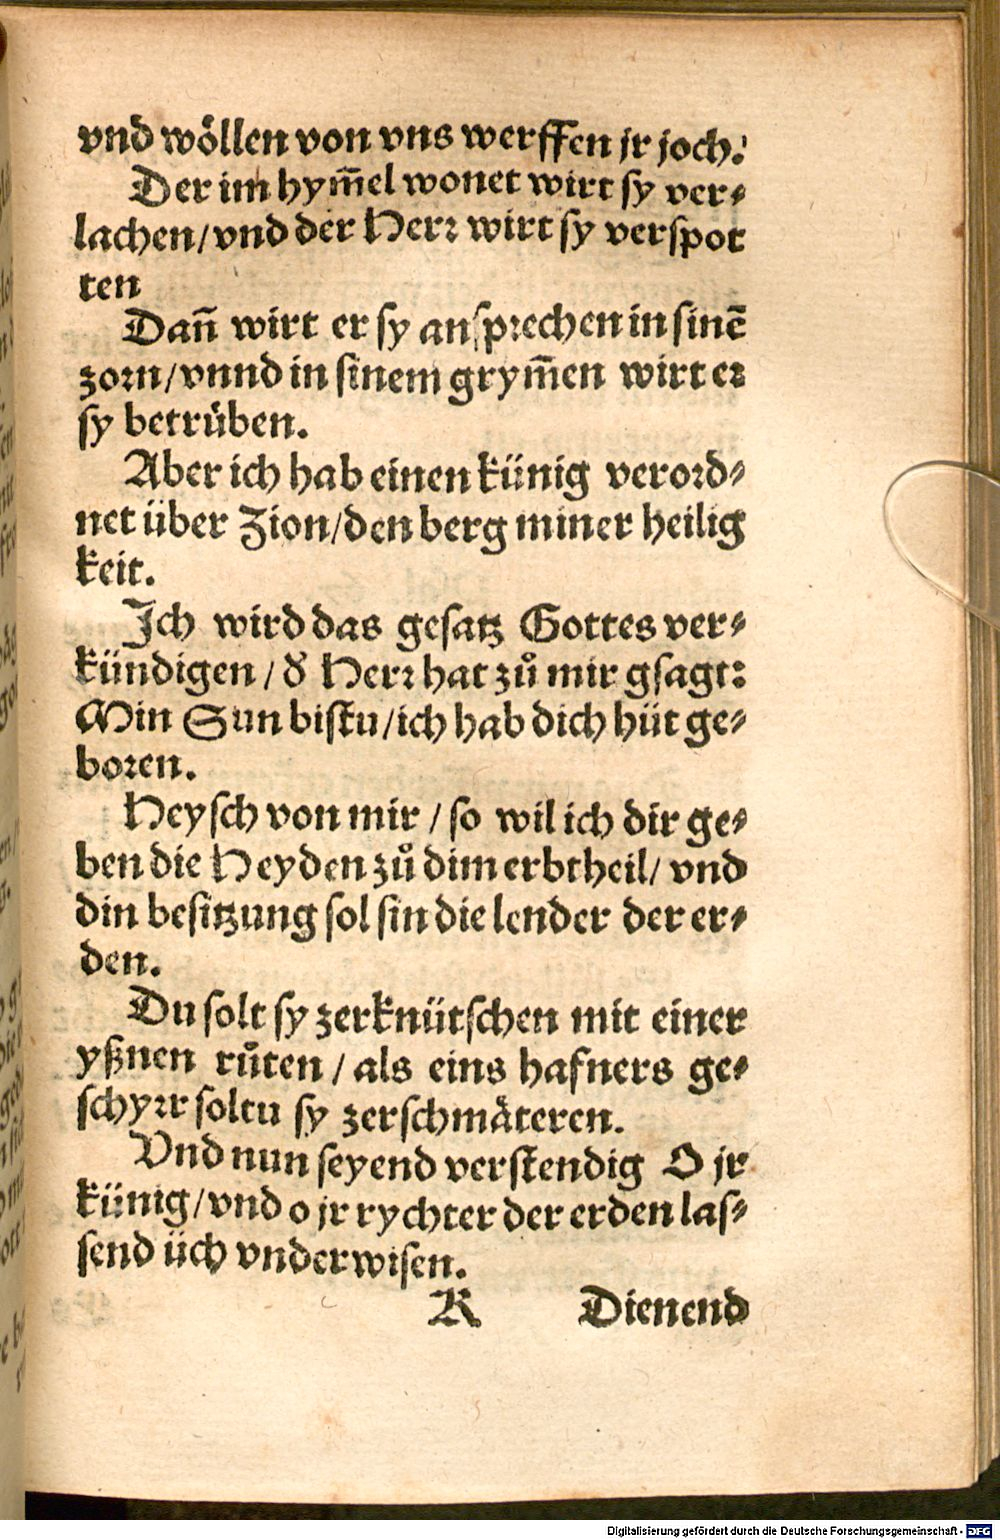 vnd wöllen von vns werffen jr joch.
Der im hym̃el wonet wirt sy ver-
lachen/vnd der Herr wirt sy verspot
ten
Dañ wirt er sy ansprechen in sinē
zorn/vnnd in sinem grym̃en wirt er
sy betrüben.
Aber ich hab einen künig verord-
net über Zion/den berg miner heilig
keit.
Ich wird das gesatz Gottes ver-
kündigen / d̕ Herr hat zů mir gsagt:
Min Sun bistu/ich hab dich hüt ge-
boren.
Heysch von mir / so wil ich dir ge-
ben die Heyden zů dim erbtheil/ vnd
din besitzung sol sin die lender der er-
den.
Du solt sy zerknütschen mit einer
yßnen růten / als eins hafners ge-
schyrr soltu sy zerschmäteren.
Vnd nun seyend verstendig O jr
künig/vnd o jr rychter der erden las-
send üch vnderwisen.
K Dienend
Digitalisierung gefördert durch die Deutsche Forschungsgemeinschaft - DFG